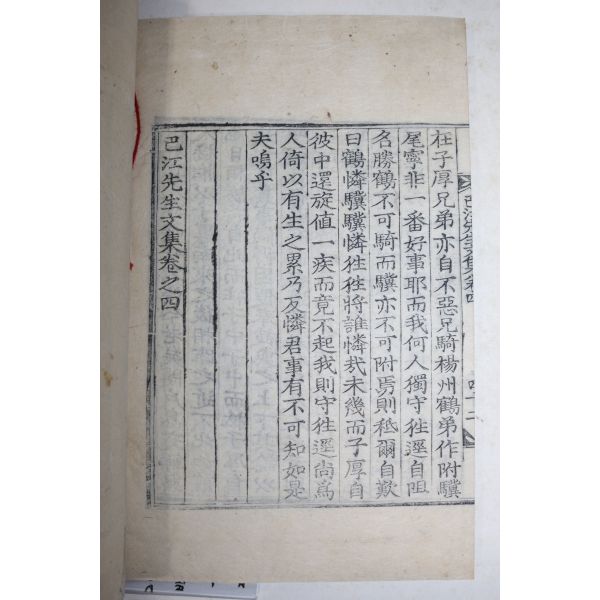 巴江先生文集卷四
在子厚兄弟亦自不惡兄騎楊州鶴弟作附驥
尾寧非一番好事耶而我何人獨守徃逕自阻
名勝鶴不可騎而驥亦不可附焉則秪爾自歎
曰鶴憐驥驥憐徃徃將誰憐㢤未幾而子厚自
彼中還旋值一疾而竟不起我則守徃逕尚爲
人倚以有生之累乃反憐君事有不可知如是
夫嗚乎
巴江先生文集卷之四